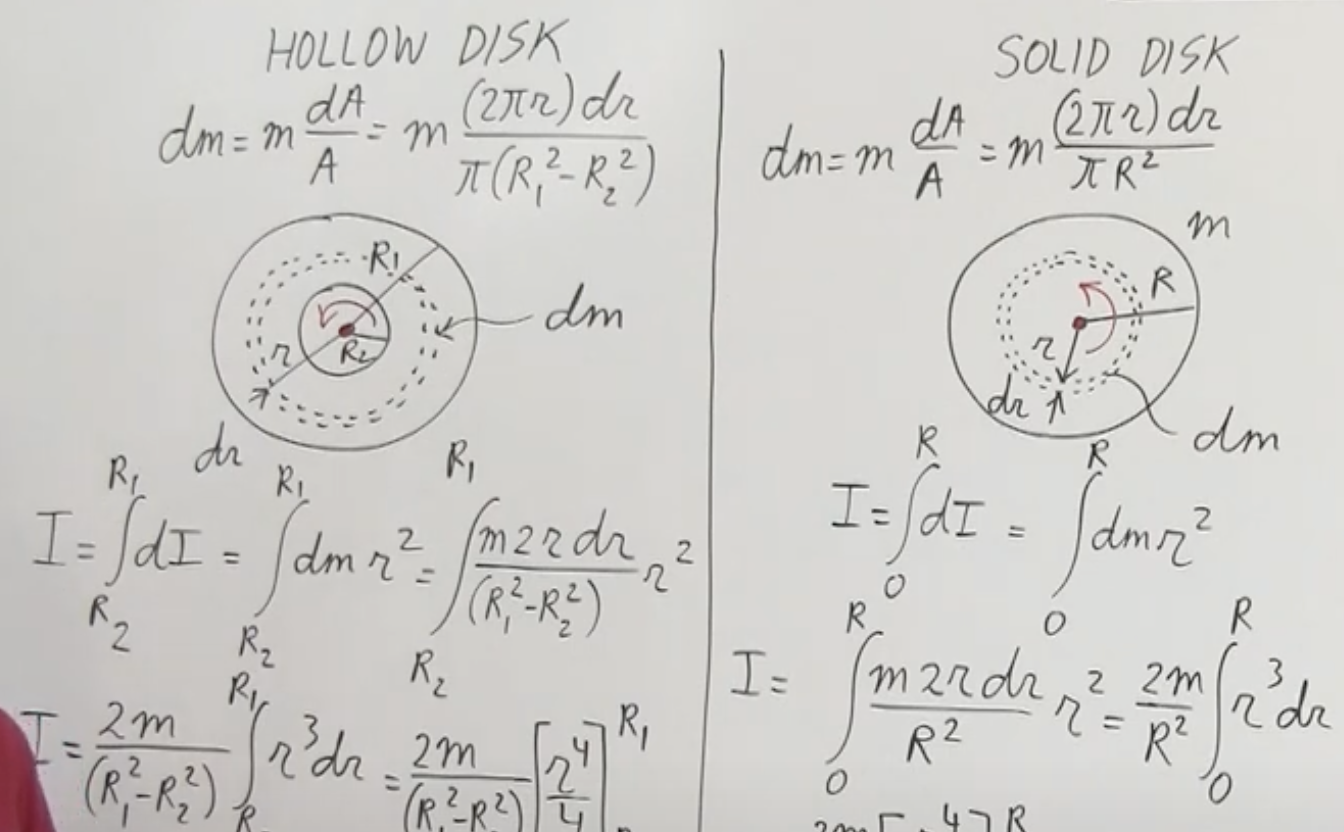 HOLLOW DISK
dm = m dA/A = m (2πr)dr / π(R₁²-R₂²)
R₁
dm
r
R₂
dr
I = ∫_{R₂}^{R₁} dI = ∫_{R₂}^{R₁} dm r² = ∫_{R₂}^{R₁} m2rdr/(R₁²-R₂²) r²
I = 2m/(R₁²-R₂²) ∫^{R₁} r³dr = 2m/(R₁²-R₂²) [r⁴/4]^{R₁}
SOLID DISK
dm = m dA/A = m (2πr)dr / πR²
m
R
r
dr
dm
I = ∫₀^R dI = ∫₀^R dm r²
I = ∫₀^R m2rdr/R² r² = 2m/R² ∫₀^R r³dr